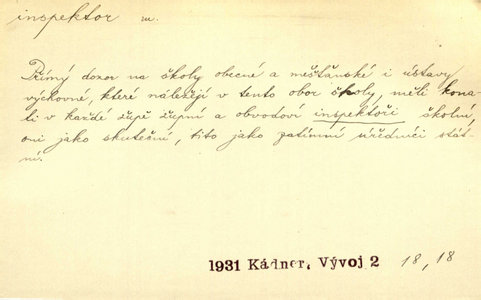 inspektor m.
Přímý dozor na školy obecné a měšťanské i ústavy
výchovné, které náležejí v tento obor školy, měli kona-
ti v každé župě župní a obvodoví inspektoři školní,
oni jako skuteční, tito jako zatímní úředníci stát-
ní.
1931 Kádner, Vývoj 2 18, 18